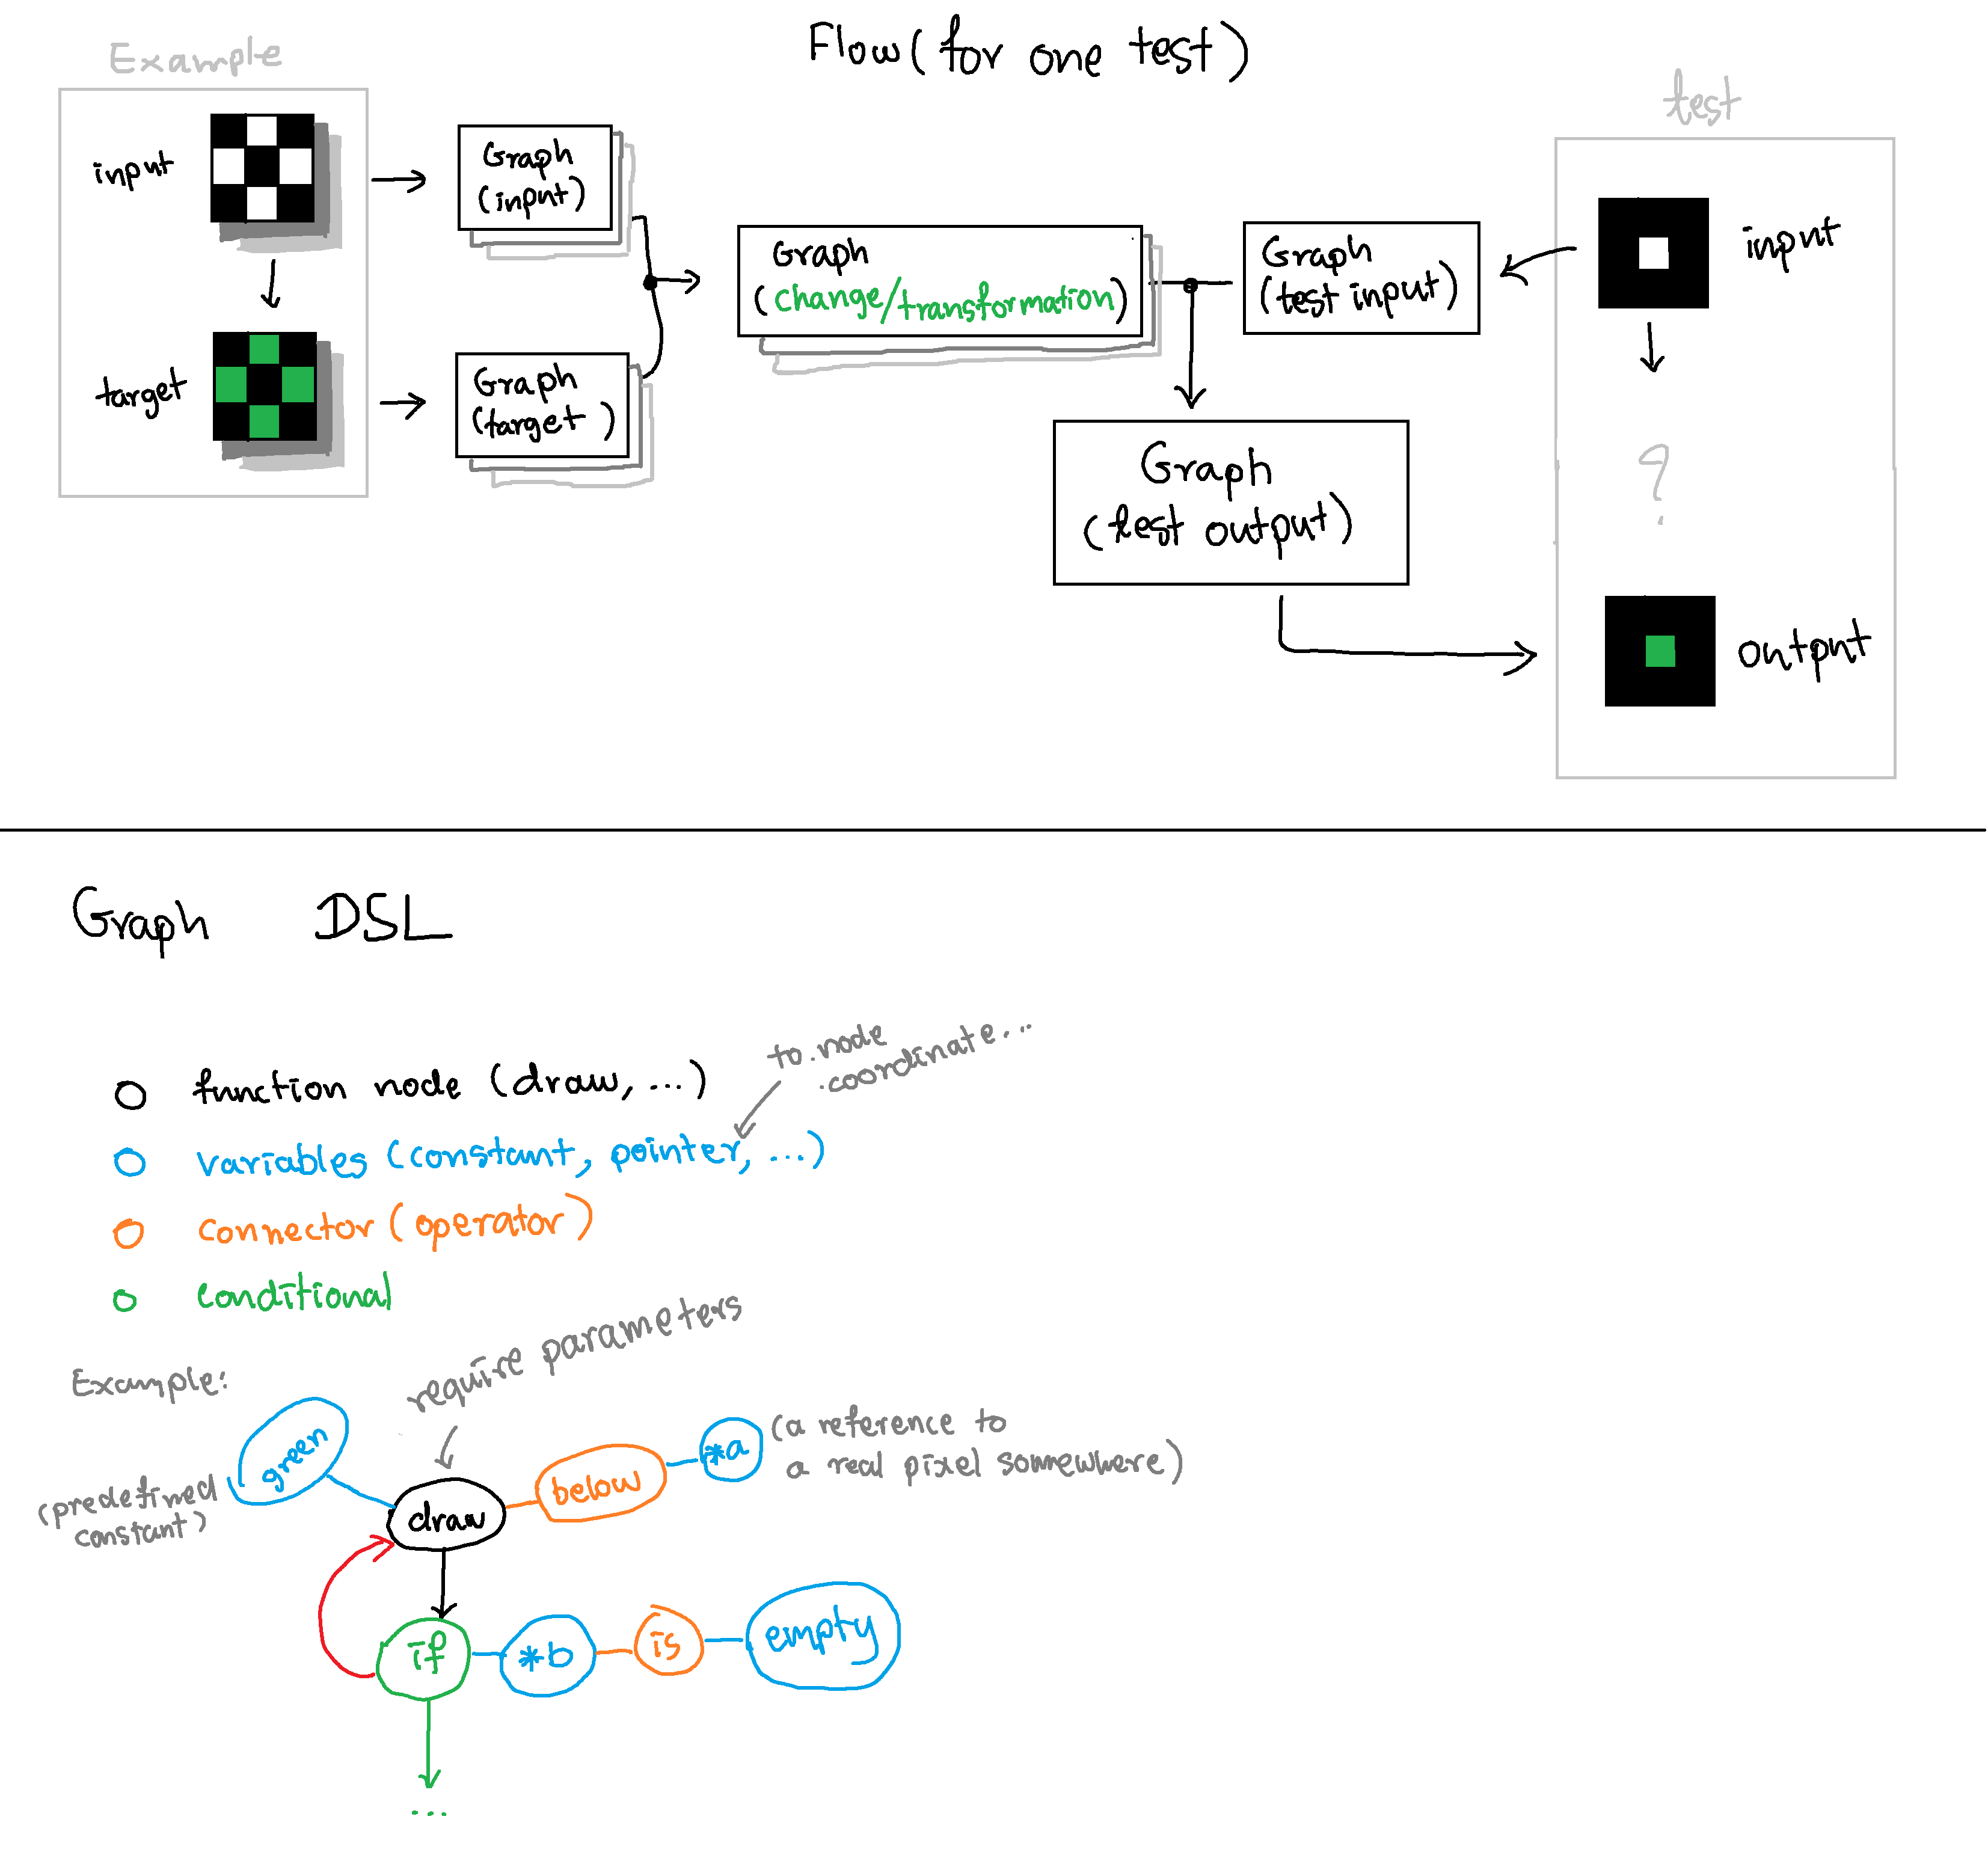 Flow (for one test)
Example
input
target
Graph
(input)
Graph
(target)
Graph
(change/transformation)
Graph
(test input)
Graph
(test output)
test
input
?
output
Graph DSL
function node (draw, ...)
to.node
.coordinate...
variables (constant, pointer, ...)
connector (operator)
conditional
require parameters
Example:
green
(predefined
constant)
draw
below
*a
(a reference to
a real pixel somewhere)
if
*b
is
empty
...